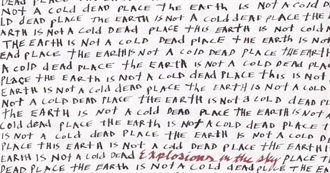 DEAD PLACE THE EARTH IS NOT A COLD
NOT A COLD DEAD PLACE THE EARTH IS NOT A COLD DEAD
IS NOT A COLD DEAD PLACE THE EARTH IS NOT A COLD DEAD PLACE THE
EARTH IS NOT A COLD DEAD PLACE THIS EARTH IS NOT COLD
THE EARTH IS NOT A COLD DEAD PLACE THE EARTH IS NOT A COLD
DEAD PLACE THE EARTH IS NOT A COLD DEAD PLACE THE EARTH
A COLD DEAD PLACE THE EARTH IS NOT A COLD DEAD PLACE
PLACE THE EARTH IS NOT A COLD DEAD PLACE THIS IS NOT
EARTH IS NOT A COLD DEAD PLACE THE EARTH IS NOT A COLD
COLD DEAD PLACE THE EARTH IS NOT A COLD DEAD PLACE
THE EARTH IS NOT A COLD DEAD PLACE THE EARTH IS NOT A
COLD DEAD PLACE THE EARTH IS NOT A COLD DEAD PLACE THE
IS NOT A COLD DEAD PLACE THE EARTH IS NOT A COLD DEAD
PLACE THIS EARTH IS NOT A COLD DEAD PLACE THE EARTH IS
EARTH IS NOT A COLD DEAD Explosions in the sky PLACE
DEAD PLACE THE EARTH IS NOT A COLD DEAD PLACE THE EARTH IS